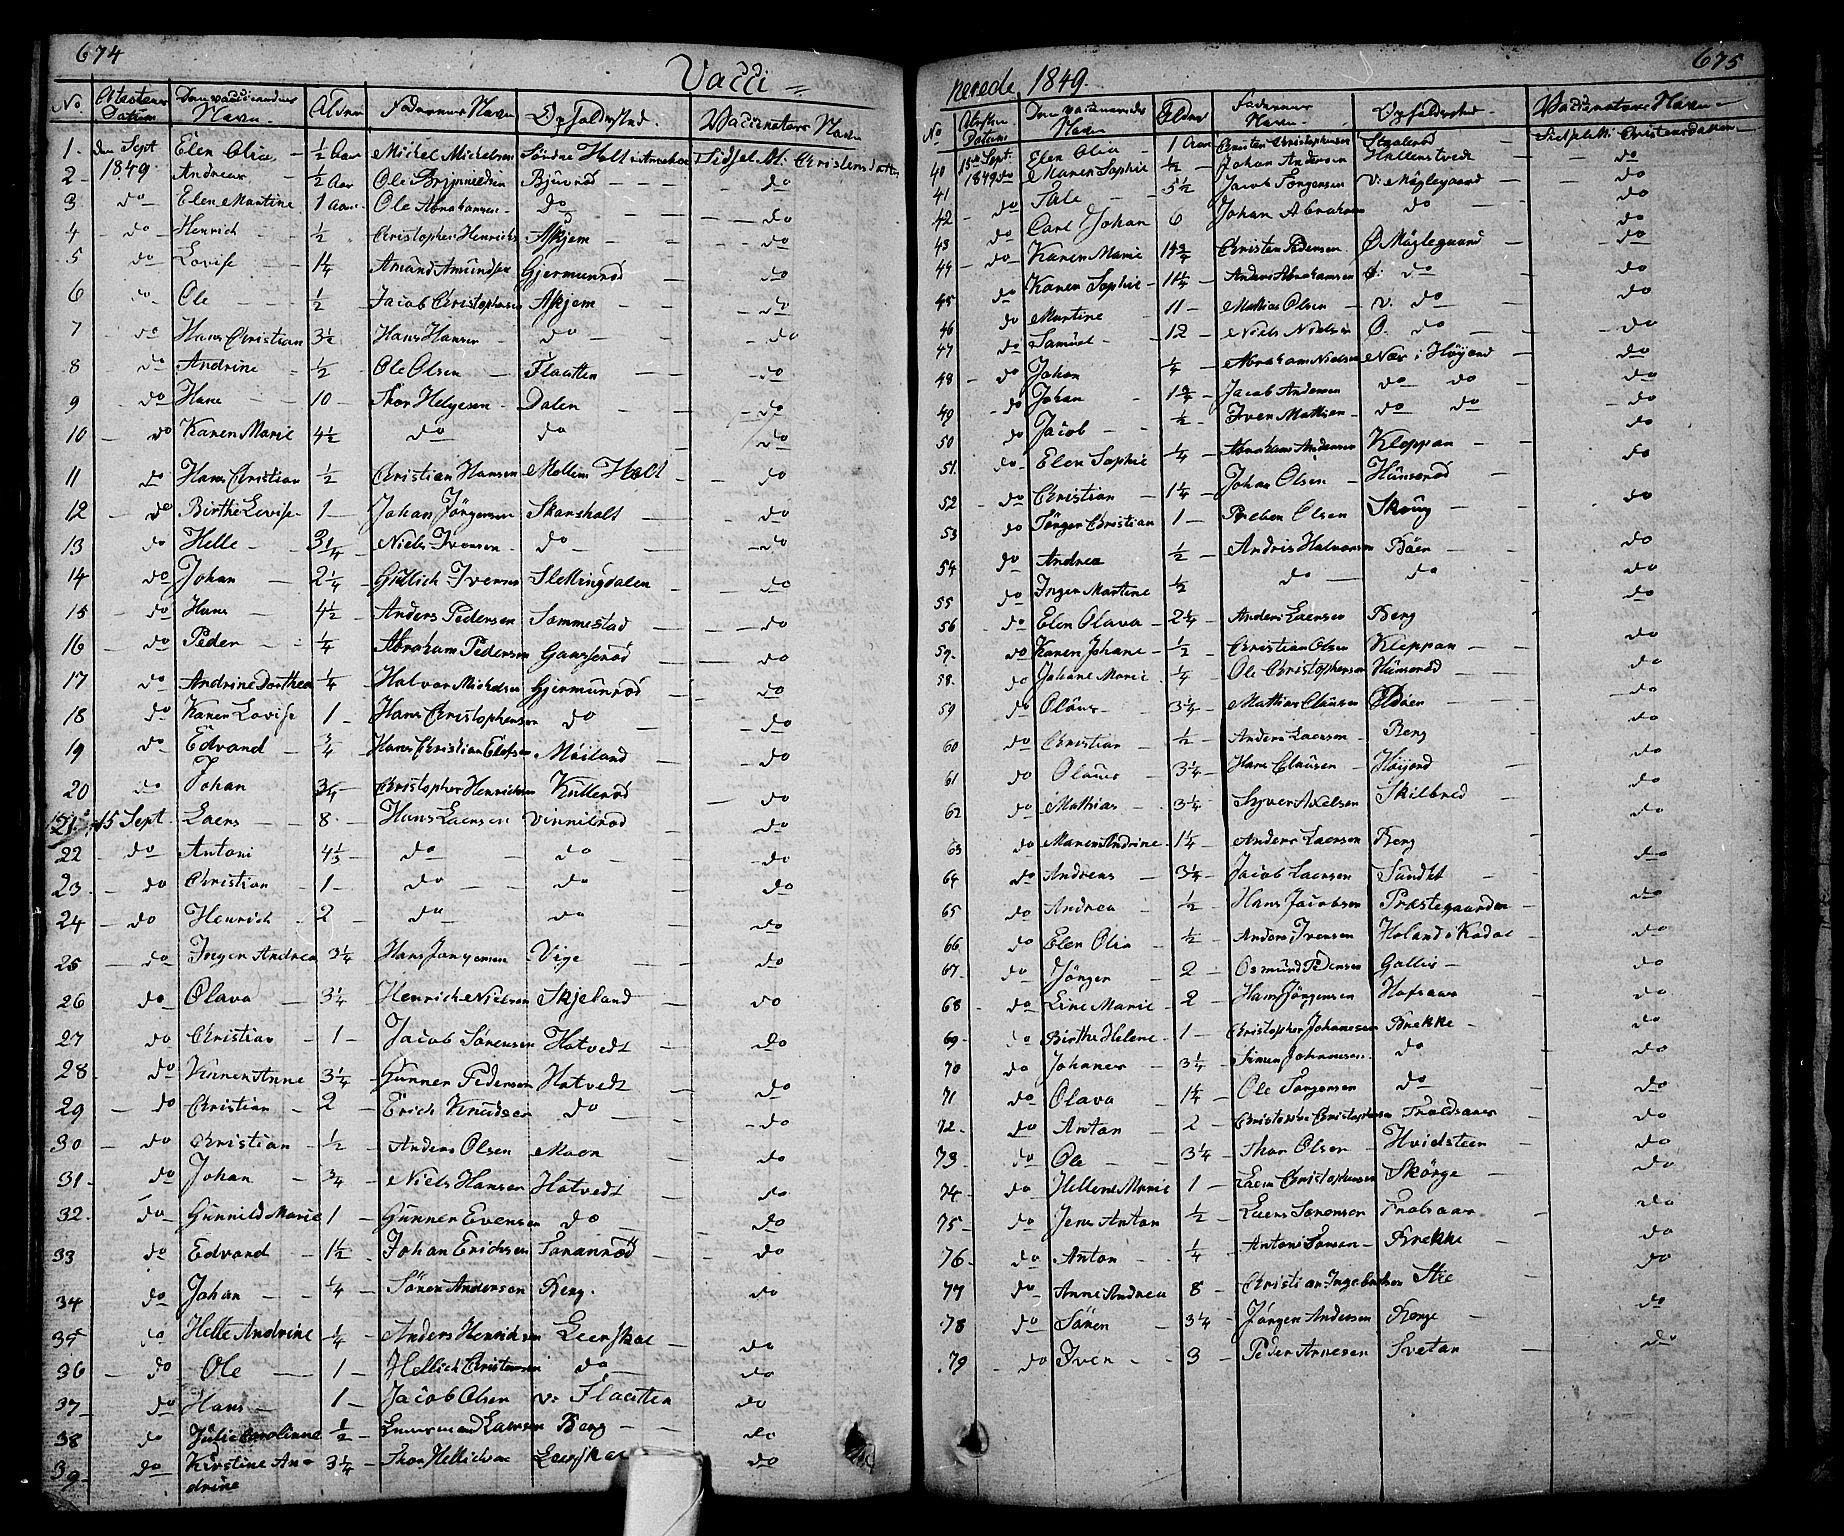 674
Vacci =
No | Attestens Datum | Den vaccinerendes Navn | Alder | Faderens Navn | Opholdssted | Vaccinateurs Navn
1 - den Sept | Elen Olia | ½ Aar | Michel Michelsen | Søndre Holt | Sidsel M. Christensdatter
2 - 1849 | Andreas | ½ Aar | Ole Brynnildsen | Bjuerød | do
3 do | Elen Martine | 1 Aar | Ole Abrahamsen | do | do
4 - do | Henrich | ½ | Christopher Henrichs | Askjem | do
5 do | Lovise | 1¼ | Amund Amundsen | Gjermunrød | do
6 do | Ole | ½ | Jacob Christophersen | Askjem | do
7 do | Hans Christian | 3½ | Hans Hansen | do | do
8 do | Andrine | ½ | Ole Olsen | Flaatten | do
9 do | Hans | 10 | Thor Helgesen | Dalen | do
10 do | Karen Marie | 4½ | do | do | do
11 do | Hans Christian | ½ | Christian Hansen | Mellem Holt | do
12 do | Birthe Lovise | 1 | Johan Jörgensen | Skarsholt | do
13 do | Helle | 3¼ | Niels Iversen | do | do
14 do | Johan | 2¼ | Gullich Ivers | Slettingdalen | do
15 do | Hans | 4½ | Anders Pedersen | Sommestad | do
16 do | Peder | ¼ | Abraham Pedersen | Gasserød | do
17 do | Andrine Dorthea | ¼ | Halvor Michelsen | Gjermunrød | do
18 do | Karen Lovise | 1 | Hans Christophersen | do | do
19 do | Edvard | ¾ | Hans Christian Elofsen | Möiland | do
20 do | Johan | ¾ | Christopher Henrichsen | Kullerød | do
21 15 Sept | Laers | 8 | Hans Laersen | Vinnilrød | do
22 do | Antoni | 4½ | do | do | do
23 do | Christian | 1 | do | do | do
24 do | Henrich | 2 | do | do | do
25 do | Inger Andrea | 3¼ | Hans Jorgensen | Vige | do
26 do | Olava | 3¼ | Henrich Nielsen | Skjeland | do
27 do | Christian | 1 | Jacob Sörensen | Hotvedt | do
28 do | Karen Anne | 3¼ | Gunner Pedersen | Hotvedt | do
29 do | Christian | 2 | Erich Knudsen | do | do
30 do | Christian | ½ | Anders Olsen | Moon | do
31 do | Johan | ¾ | Niels Hansen | Hotvedt | do
32 do | Gunnild Marie | 1 | Gunner Evensen | do | do
33 do | Edvard | 1½ | Johan Erichsen | Soranrød | do
34 do | Johan | ¼ | Sören Andersen | Berg | do
35 do | Helle Andrine | ¼ | Anders Henrichsen | Leerskal | do
36 do | Ole | 1 | Hellich Christensen | do | do
37 do | Hans | 1 | Jacob Olsen | v: Flaatten | do
38 do | Julie Carolinne | ½ | Laersen | Berg | do
39 do | Kirstine An= | 3¼ | Thor Hellichsen | Leerskal | do
drine
675
nerede 1849.
No | Attestens Datum | Den vaccinerendes Navn | Alder | Faderens Navn | Opholdssted | Vaccinateurs Navn
40 15de Sept: | Elen Olia | 1 Aar | Christen Christophersen | Sidsel M. Christensdatter
1849 do | Maren Sophie | ½ | Johan Andersen | Hallenstvedt | do
41 do | Tale | 5½ | Jacob Torgersen | V: Möglegaard | do
42 do | Carl Johan | 6 | Johan Abraham | do | do
43 do | Karen Marie | 14¾ | Christen Pedersen | Ø. Möglegaard | do
44 do | Karen Sophie | 11¼ | Anders Abrahamsen | Ø: do | do
45 do | Martine | 11 | Mathias Olsen | v. do | do
46 do | Samuel | 12 | Niels Nielsen | Ø. do | do
47 do | Johan | ¼ | Abraham Nielsen | Nær i Höijord | do
48 do | Johan | 1¾ | Jacob Andersen | do do | do
49 do | Jacob | ½ | Iver Mathisen | do do | do
50 do | Elen Sophie | ¼ | Abraham Andersen | Kleppan | do
51 do | Christian | 1¼ | Johan Olsen | Hünserød | do
52 do | Törger Christian | 1 | Preben Olsen | Skoug | do
53 do | Andrea | ½ | Andris Halvorsen | Böen | do
54 do | Inger Martine | ½ | do | do | do
55 do | Elen Olava | 2¼ | Anders Laersen | Berg | do
56 do | Karen Johane | ½ | Christian Olsen | Kleppan | do
59 do | Juliane Marie | ¼ | Ole Christophersen | Hünserød | do
58 do | Olaus | 3¼ | Mathias Clausen | Böen | do
59 do | Christian | ½ | Anders Laersen | Berg | do
60 do | Olaus | 3¼ | Hans Clausen | Höijord | do
61 do | Mathias | 3¼ | Syver Axelsen | Skilbred | do
62 do | Maren Andrine | 1¼ | Anders Laersen | Berg | do
63 do | Andreas | 3¼ | Jacob Laersen | Sundet | do
64 do | Andrea | ½ | Hans Jacobsen | Præstegaarden | do
65 do | Elen Olia | ½ | Anders Iversen | Holand i Kodal | do
66 do | Jörgen | 2 | Osmund Pedersen | Gallis | do
67 do | Line Marie | 2 | Hans Jörgensen | Hafsaas | do
68 do | Birthe Helene | 1 | Christopher Johanesen | Brekke | do
69 do | Johanes | 3¼ | Simen Johannesen | do | do
70 do | Olava | 1¼ | Ole Torgersen | do | do
71 do | Anton | 2 | Christopher Christophersen | Troldsaas | do
72 do | Ole | 3¼ | Thor Olsen | Hvidsteen | do
73 do | Hellene Marie | 1 | Laers Christophersen | Skörge | do
74 do | Jens Anton | ½ | Laers Sorensen | Trolsaas | do
75 do | Anton | ¼ | Antoni | Brekke | do
76 do | Anne Andrea | 8 | Christian Ingebretsen | Stie | do
77 do | Sören | 3¼ | Jörgen Andersen | do
78 do | Iver | 3 | Peder Arnesen | Svetan | do
79 do